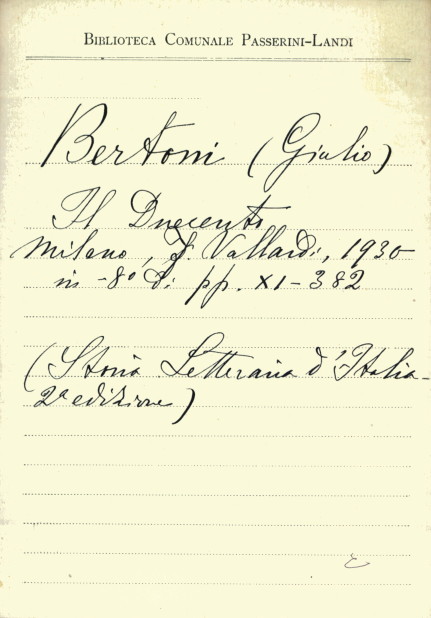 BIBLIOTECA COMUNALE PASSERINI-LANDI
Bertoni (Giulio)
Il Duecento
Milano, F. Vallardi, 1930
in-8° di pp. XI-382
(Storia Letteraria d'Italia-
2ª edizione)